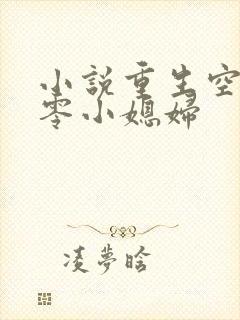 小説重生空
零小媳婦
凌夢晗